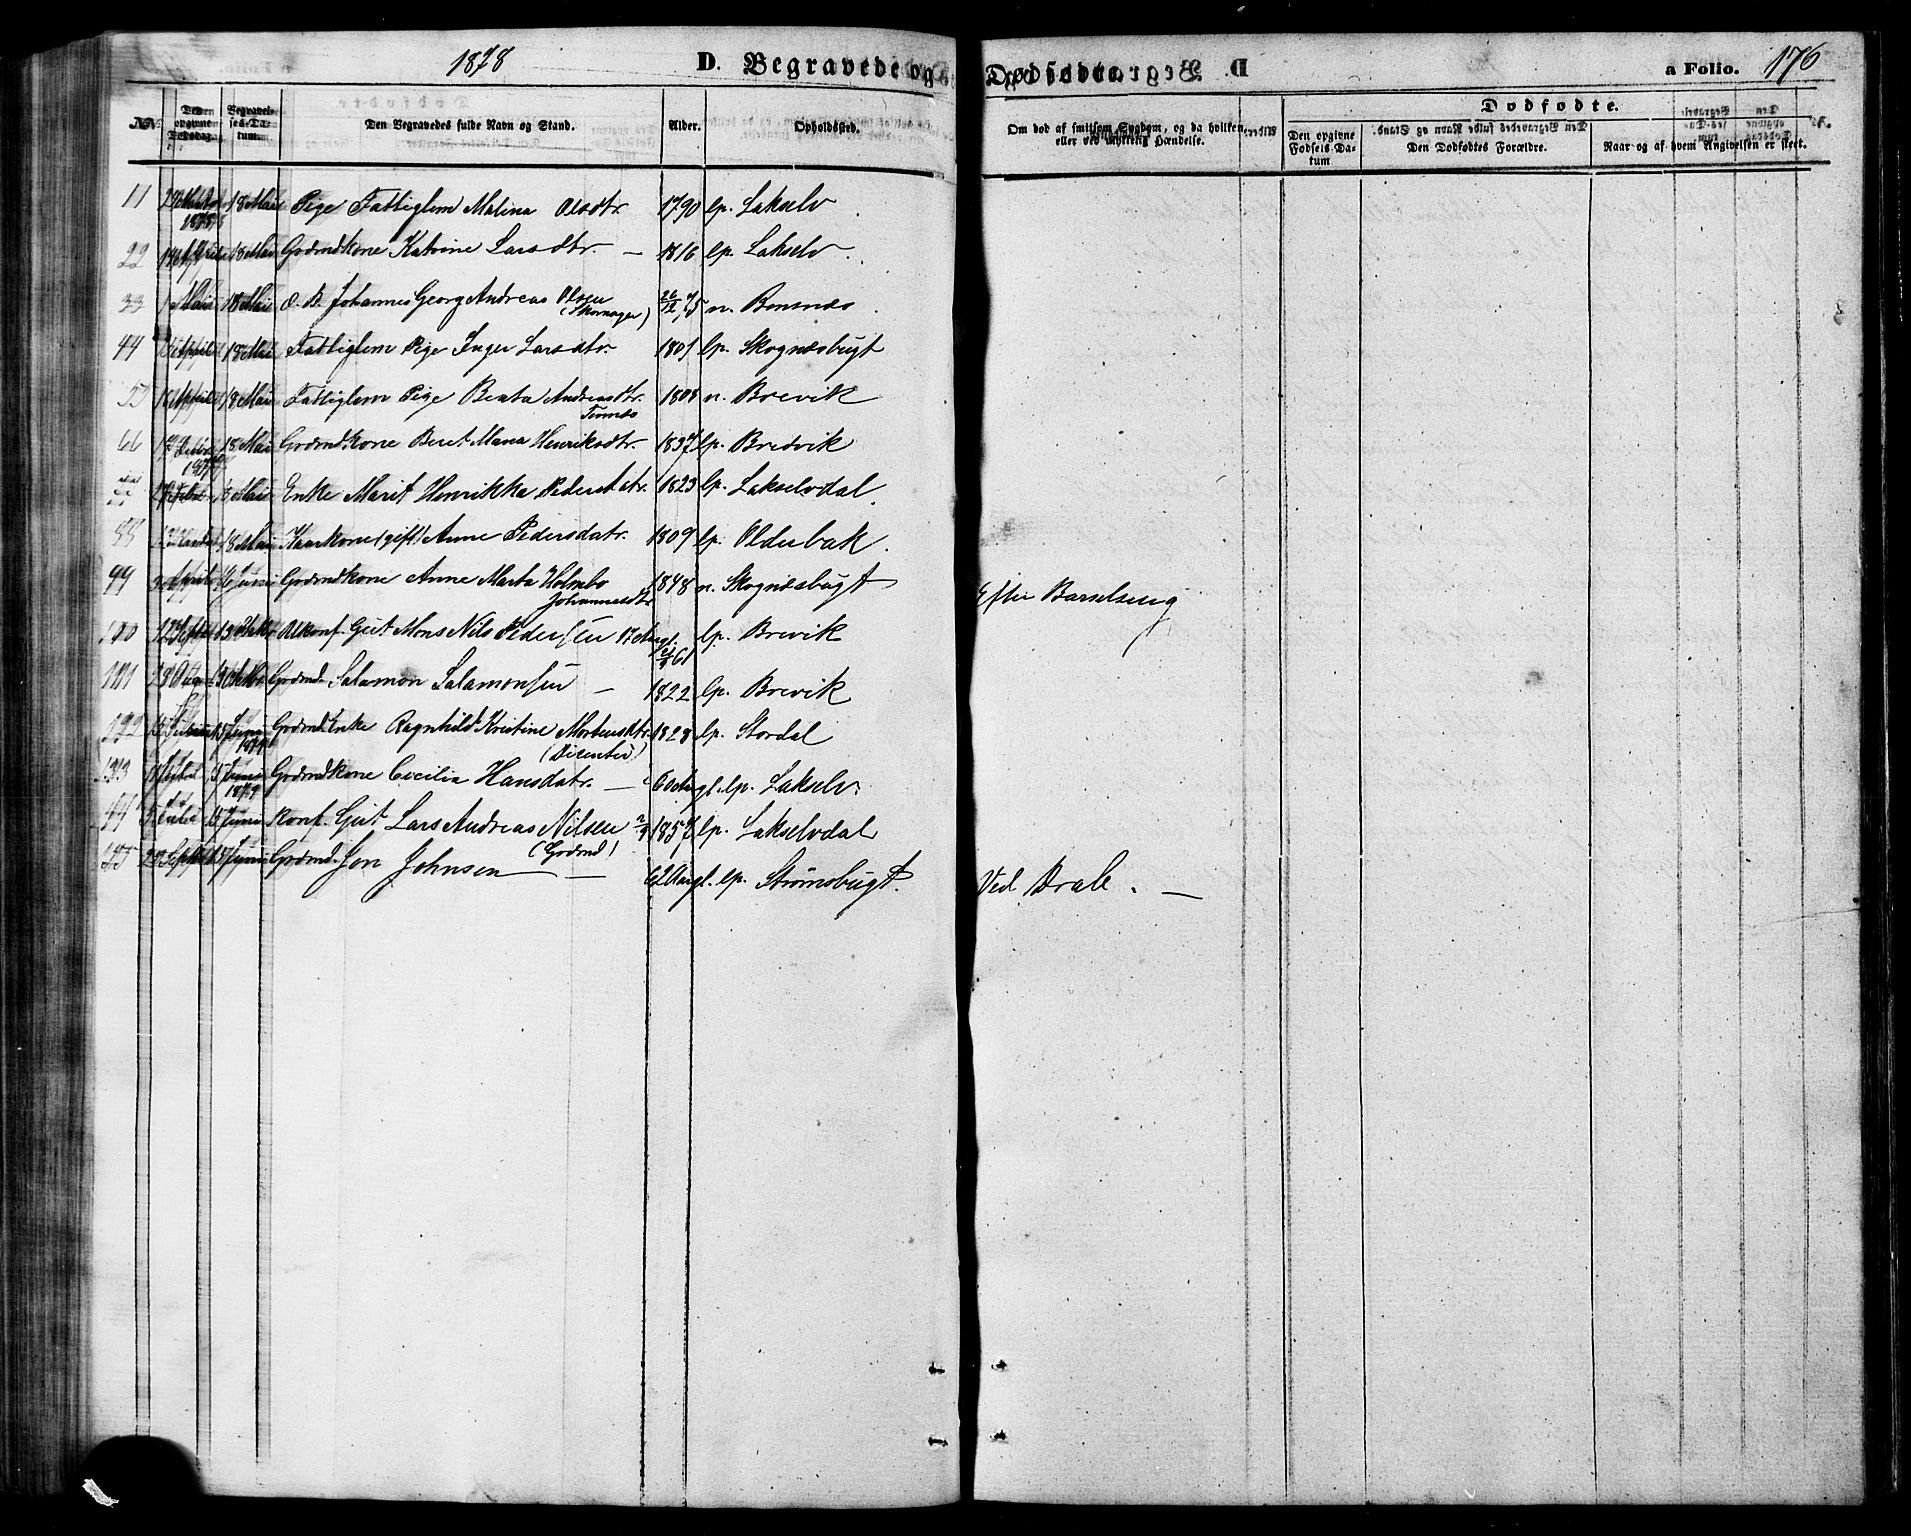 1878 D. Begravede og Dødfødte. a Folio. 176
NN. Den opgivne Dødsdag. Begravelses-Datum. Den Begravedes fulde Navn og Stand. Alder. Opholdssted. Om død af smitsom Sygdom, og da hvilken, eller ved ulykkelig Hændelse. Dødfødte. Den opgivne Fødsels Datum Den Dødfødtes Forældre. Naar og af hvem Angivelsen er skeet.
11 1878 18 Mai Pige Fattiglem Malina Olsdtr. 1790 lp. Lakselv
22 14 April 18 Mai Grdmdkone Katrine Larsdtr. — 1816 lp. Lakselv.
33 Mai 18 Mai d. B. Johannes Georg Andreas Olsen (Skomager) 26/12 75 n. Bensnæs
44 April 18 Mai Fattiglem Pige Inger Larsdtr. 1801 lp. Skognæsbugt
55 April 18 Mai Fattiglem Pige Benta Andreasdtr. 1808 n. Brevik
66 1877 18 Mai Grdmdkone Beret Maria Henriksdtr. 1837 lp. Bredvik
Febr 18 Mai Enke Marit Henrikka Pedersdatr. 1823 lp. Lakselvdal
88 18 Mai Kaarkone (gift) Anne Pedersdatr. 1809 lp. Olderbak.
99 April 16 Juni Grdmdkone Anne Marta Holmbo Johannesdtr 1848 n. Skognæsbugt Efter Barselseng
100 12 Septbr 13 Oktbr Ukonf. Gut Mons Nils Pedersen 17 Aargl. 61 lp. Brevik
111 28 Aug 13 Oktbr Grdmd. Salamon Salamonsen — 1822 lp. Brevik
122 15 Juni 1879 Grdmd. Enke Ragnhild Kristine Mortensdtr. (Dicenter) 1828 lp. Stordal
133 15 Juni 1879 Grdmdkone Cecilia Hansdatr. — 60 Aargl. lp. Lakselv.
144 15 Juni Konf. Gut Lars Andreas Nilsen (Grdmd) 1857 lp. Lakselvdal
155 Septbr 15 Juni Grdmd. Jon Johnsen — 62 Aargl. lp. Strømsbugt. Ved Brak. —